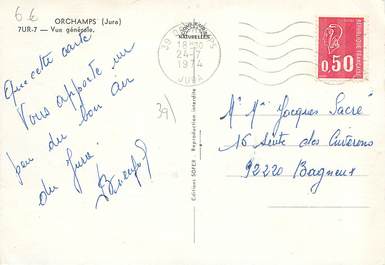 6 €
ORCHAMPS (Jura)
7UR-7 — Vue générale.
Que cette carte
Vous apporte un
peu du bon air
du Jura.
39
18 H 30
24-7
1974
JURA
NATURELLES
0,50
REPUBLIQUE FRANÇAISE
39/
Editions SOFER - Reproduction interdite
Mr Mme Jacques Sacré
16 Sente des Cuverons
92220 Bagneux